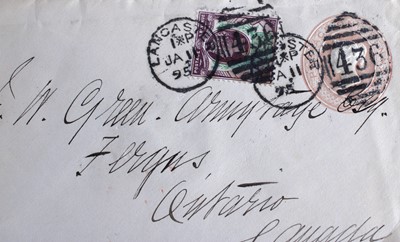 LANCASTER
1*P
JA 11
95
436
LANCASTER
1*P
JA 11
95
436
W. Green-Armytage Esq
Fergus
Ontario
Canada